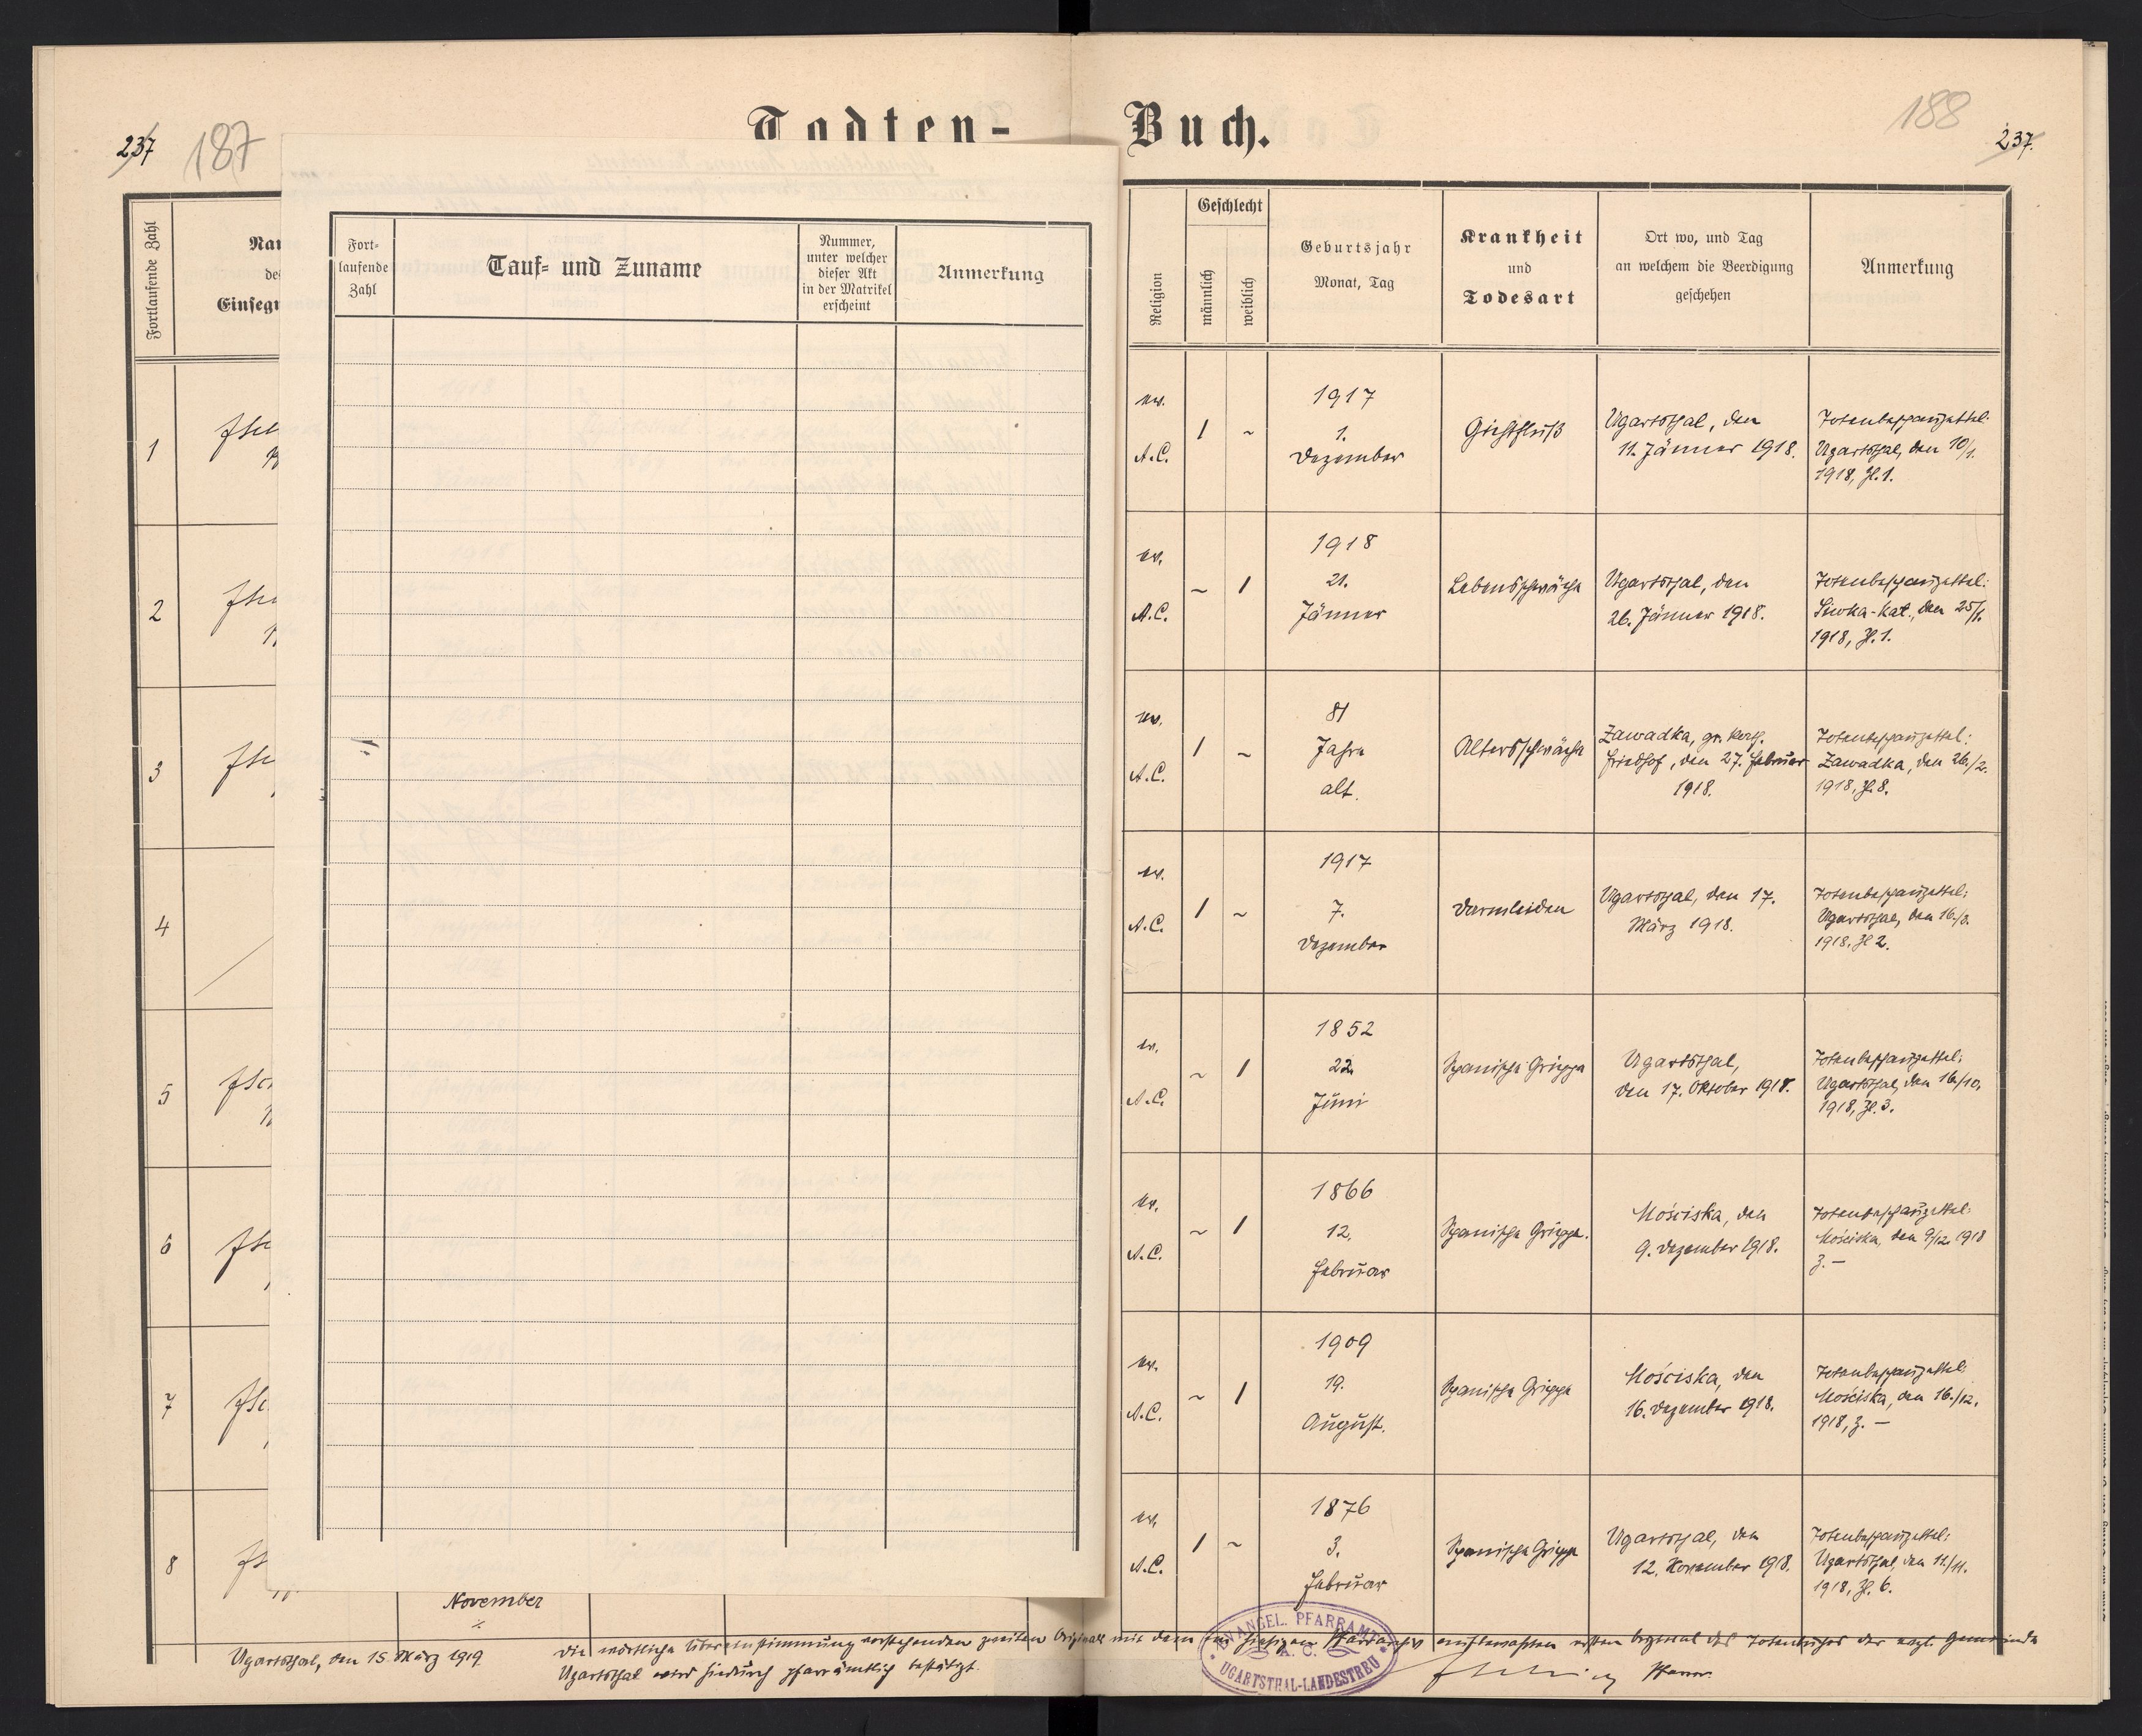 Todten-
Buch.
237
187
188
237.
Fortlaufende Zahl
Fort-
laufende
Zahl
Tauf- und Zuname
Nummer,
unter welcher
dieser Akt
in der Matrikel
erscheint
Anmerkung
Religion
Geschlecht
männlich
weiblich
Geburtsjahr
Monat, Tag
Krankheit
und
Todesart
Ort wo, und Tag
an welchem die Beerdigung
geschehen
Anmerkung
1
ev.
A.C.
1
~
1917
1.
Dezember
Gichtfluß
Ugartsthal, den
11. Jänner 1918.
Totenbeschauzettel:
Ugartsthal, den 10/1.
1918, Zl. 1.
2
ev.
A.C.
~
1
1918
21.
Jänner
Lebensschwäche
Ugartsthal, den
26. Jänner 1918.
Totenbeschauzettel:
Siwka-kat., den 25/1.
1918, Zl. 1.
3
ev.
A.C.
1
~
81
Jahre
alt.
Altersschwäche
Zawadka, gr. kath.
Friedhof, den 27. Februar
1918.
Totenbeschauzettel:
Zawadka, den 26./2.
1918, Zl. 8.
4
ev.
A.C.
1
~
1917
7.
Dezember
Darmleiden
Ugartsthal, den 17.
März 1918.
Totenbeschauzettel:
Ugartsthal, den 16./3.
1918, Zl 2.
5
ev.
A.C.
~
1
1852
22.
Juni
Spanische Grippe
Ugartsthal,
den 17. Oktober 1918.
Totenbeschauzettel:
Ugartsthal, den 16/10.
1918, Zl. 3.
6
ev.
A.C.
~
1
1866
12.
Februar
Spanische Grippe.
Mościska, den
9. Dezember 1918.
Totenbeschauzettel:
Mościska, den 9/12. 1918
Z. —
7
ev.
A.C.
~
1
1909
19.
August.
Spanische Grippe
Mościska, den
16. Dezember 1918.
Totenbeschauzettel:
Mościska, den 16./12.
1918, Z. —
8
November
ev.
A.C.
1
~
1876
3.
Februar
Spanische Grippe
Ugartsthal, den
12. November 1918.
Totenbeschauzettel:
Ugartsthal, den 11./11.
1918, Zl. 6.
Ugartsthal, den 15. März 1919.
Die wörtliche Übereinstimmung vorstehenden zweiten Originals mit dem im hiesigen Pfarrarchiv aufbewahrten ersten Original des Totenbuches der evgl. Gemeinde
Ugartsthal wird hiedurch pfarrämtlich bestätigt.
Pfarrer.
EVANGEL. PFARRAMT
A. C.
UGARTSTHAL-LANDESTREU